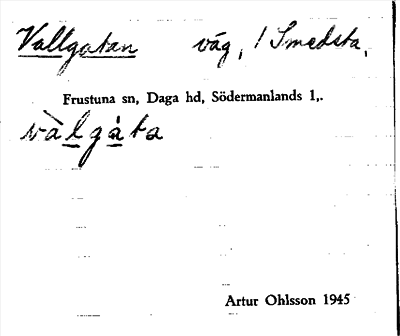 Vallgatan väg, i Smedsta,
Frustuna sn, Daga hd, Södermanlands l,.
vàlgáta
Artur Ohlsson 1945